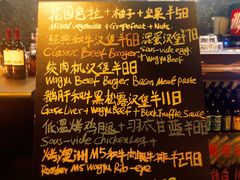 花园色拉+柚子+坚果半5日
Moral vegetables + Grapefruit + Nuts
经典和牛汉堡半8日
Classic Beef Burger
温泉蛋半1日
Sous-vide egg
绞肉机汉堡半日日
+Twagyu Beef
Wagyu Beef Burger Bacon Meat paste
鹅肝和牛黑松露汉堡半11日
Goose Liver + Wagyu Beef + Black truffle Sauce
低温烤鸡腿+羽衣甘蓝半日日
Sous-vide chicken Leg +
烤澳洲M5和牛肉眼牛排半298
Roaster M5 Wagyu Rib-eye